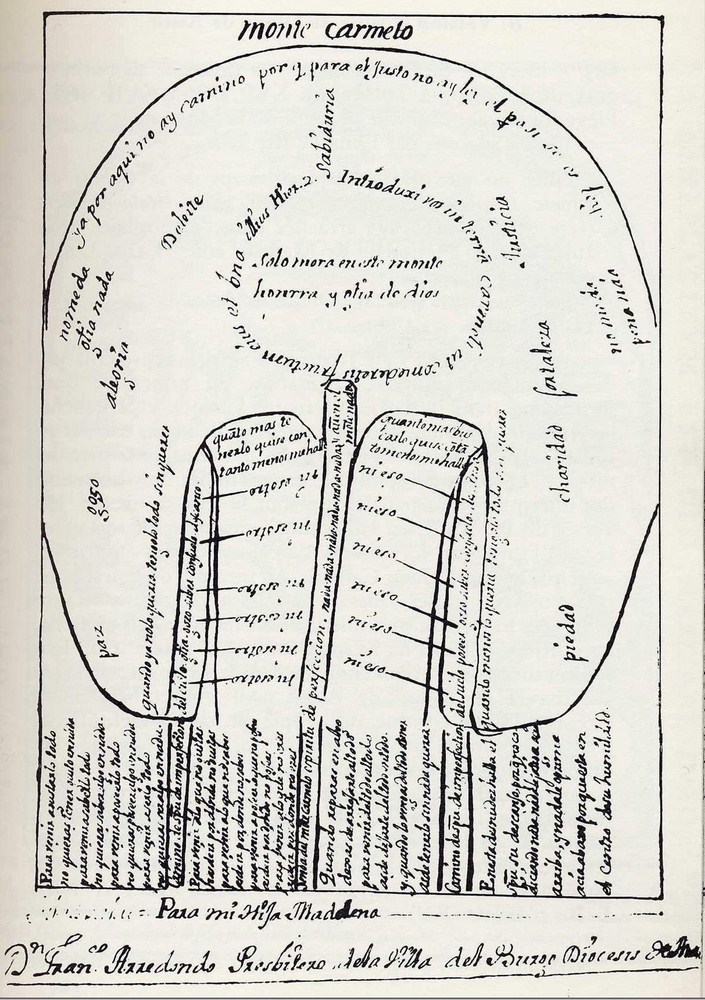 monte carmelo
ya por aqui no ay camino por q para el Justo no ay ley el para si se es ley
Sabiduria
Deleite
Justicia
Introduxi vos in terram carmeli ut comederetis fructum eius et bona illius Hier. 2.
Solo mora en este monte
honrra y glia de dios
no me da
glia nada
alegria
no me da
pena nada
fortaleza
charidad
gozo
paz
piedad
quāto mas te
nerlo quise con
tanto menos me halle
quanto mas bus
carlo quise cōtā
to menos me halle
ni esotro
ni esotro
ni esotro
ni esotro
ni esotro
ni esotro
ni eso
ni eso
ni eso
ni eso
ni eso
ni eso
nada nada nada nada nada nada y aun en el monte nada
quando ya no lo queria tengolo todo sin querer
quando menos lo queria tengolo todo sin querer
Senda del monte carmelo espiritu de perfeccion
Para venir a gustarlo todo
no quieras tener gusto en nada
para venir a saberlo todo
no quieras saber algo en nada
para venir a poseerlo todo
no quieras poseer algo en nada
para venir a serlo todo
no quieras ser algo en nada
Para venir a lo que no gustas
has de ir por donde no gustas
para venir a lo que no sabes
has de ir por donde no sabes
para venir a poseer lo que no posees
has de ir por donde no posees
para venir a lo que no eres
has de ir por donde no eres
Quando reparas en algo
dexas de arrojarte al todo
para venir del todo al todo
as de dexarte del todo en todo
y quando lo vengas del todo a tener
as de tenerlo sin nada querer
En esta desnudez halla el
spu su descanso porq no co
diciando nada nada le fatiga hacia
arriba, y nada le oprime
acia abaxo porque esta en
el centro de su humildad.
Para mi Hija Madalena
Dn. Franco. Arredondo Presbitero de la Villa del Burgo Diocesis de